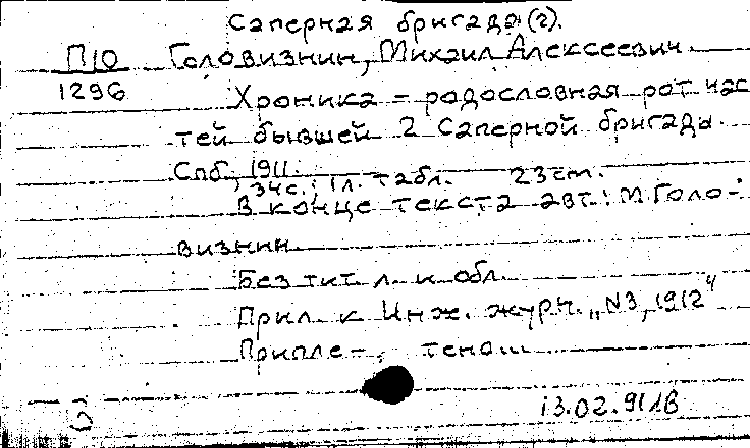 Саперная бригада (2).
П10 Головизнин, Михаил Алексеевич.
1296
Хроника – родословная рот час
тей бывшей 2 Саперной бригады.
Спб., 1911.
34с.; 1л. табл. 23cm.
В конце текста авт.: М. Голо-
визнин.
Без тит. л. и обл.
Прил. к Инж. журн. „N3, 1912"
Припле-
13.02.91